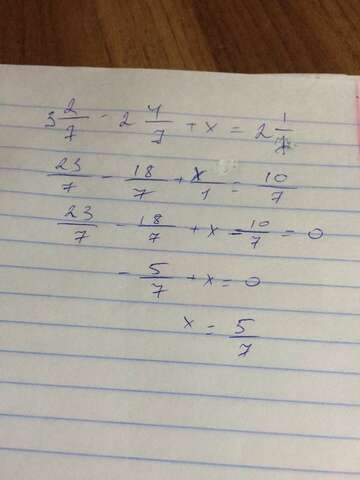 3 2/7 - 2 4/7 + x = 2 1/7
23/7 - 18/7 + x/1 = 10/7
23/7 - 18/7 + x - 10/7 = 0
- 5/7 + x = 0
x = 5/7